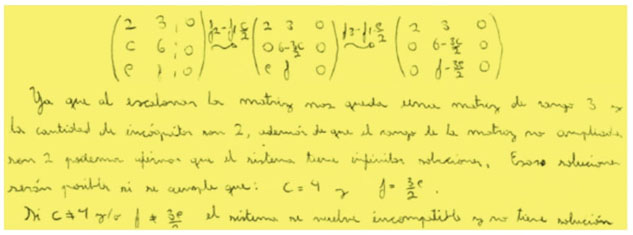 ( 2 3 | 0 ; c 6 | 0 ; e f | 0 ) f2-f1·c/2 ~ ( 2 3 0 ; 0 6-3c/2 0 ; e f 0 ) f3-f1·e/2 ~ ( 2 3 0 ; 0 6-3c/2 0 ; 0 f-3e/2 0 )
Ya que al escalonar la matriz nos queda una matriz de rango 3 y
la cantidad de incógnitas son 2, además de que el rango de la matriz no ampliada
son 2 podemos afirmar que el sistema tiene infinitas soluciones. Esas soluciones
serán posibles si se cumple que: c=4 y f=3e/2.
Si c≠4 y/o f≠3e/2 el sistema se vuelve incompatible y no tiene solución